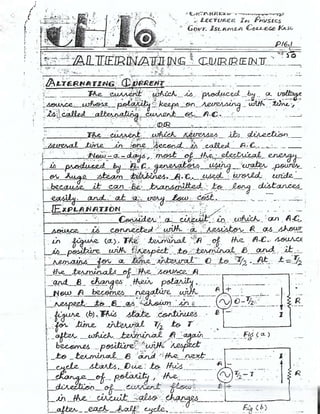 CH 16
LECTURER IN PHYSICS
GOVT. ISLAMIA COLLEGE
P16.1
ALTERNATING CURRENT
ALTERNATING CURRENT
The current which is produced by a voltage
source whose polarity keeps on reversing with time,
is called alternating current or A.C.
OR
The current which reverses its direction
several time in one second is called A.C.
Now-a-days, most of the electrical energy
is produced by A.C. generators using water power
or huge steam turbines. A.C. used world wide
because it can be transmitted to long distances
easily and at a very low cost.
EXPLANATION
Consider a circuit in which an A.C
source is connected with a resistor R as show
in figure (a). The terminal A of the A.C. source
is positive with respect to terminal B and it
remains for a time interval 0 to T/2. At t = T/2
the terminals of the source A
and B changes their polarity.
Now A becomes negative with
respect to B as shown in
figure (b). This state continues
for time interval T/2 to T
after which terminal A again
becomes positive with respect
to terminal B and the next
cycle starts. Due to this
change of polarity, the
direction of current flow
in the circuit also changes
after each half cycle.
A +
0-T/2
R
B
Fig (a)
A
I
T/2-T
R
B +
Fig (b)